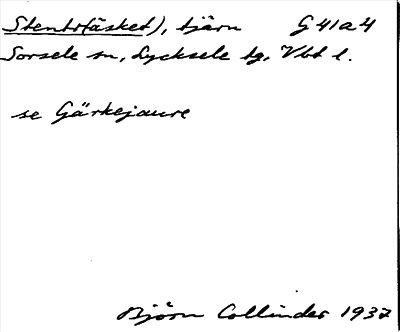 Stentrfäsket), tjärn G 41a4
Sorsele sn, Lycksele tg, Vbt l.
se Gärkejaure
Björn Collinder 1937